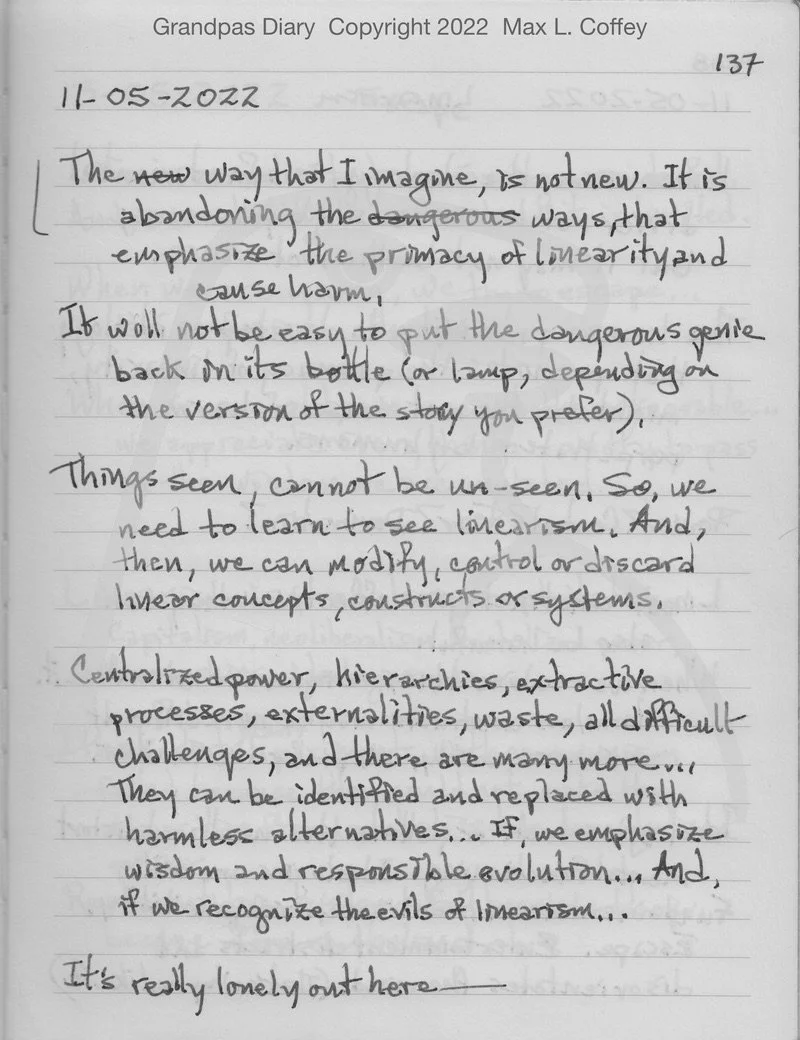 Grandpas Diary Copyright 2022 Max L. Coffey
137
11-05-2022
The new way that I imagine, is not new. It is
abandoning the dangerous ways, that
emphasize the primacy of linearity and
cause harm.
It will not be easy to put the dangerous genie
back in its bottle (or lamp, depending on
the version of the story you prefer).
Things seen, cannot be un-seen. So, we
need to learn to see linearism. And,
then, we can modify, control or discard
linear concepts, constructs or systems.
Centralized power, hierarchies, extractive
processes, externalities, waste, all difficult
challenges, and there are many more...
They can be identified and replaced with
harmless alternatives... If, we emphasize
wisdom and responsible evolution... And,
if we recognize the evils of linearism...
It's really lonely out here—